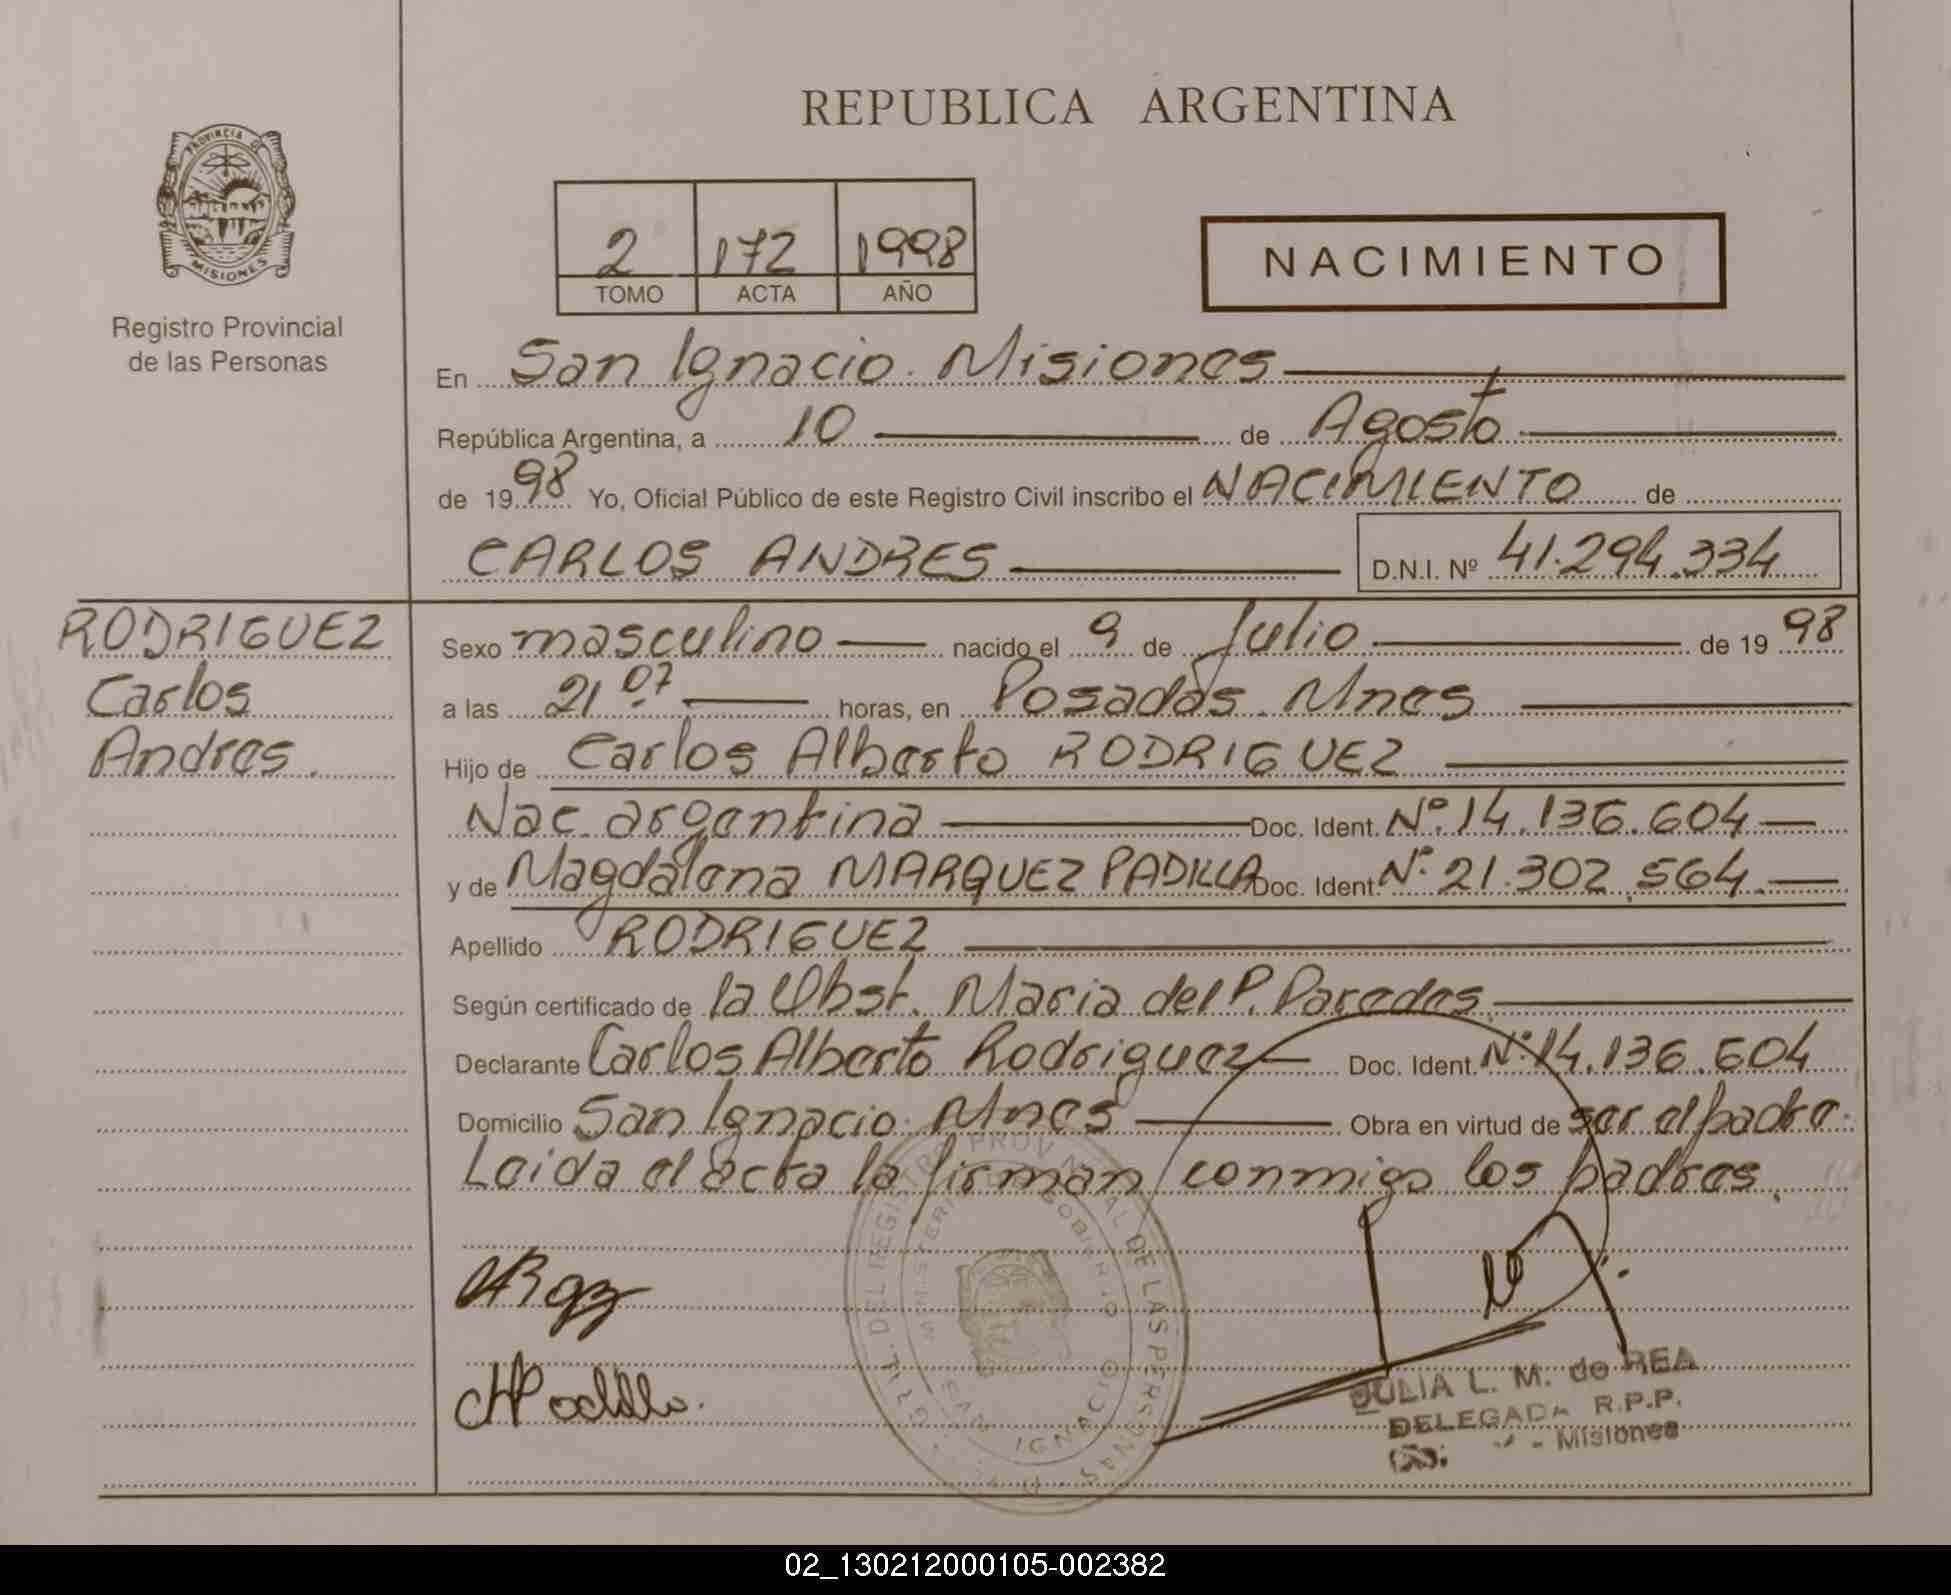 REPUBLICA ARGENTINA
PROVINCIA DE
MISIONES
Registro Provincial
de las Personas
2 172 1998
TOMO ACTA AÑO
NACIMIENTO
En San Ignacio. Misiones
República Argentina, a 10 de Agosto
de 19 98 Yo, Oficial Público de este Registro Civil inscribo el NACIMIENTO de
CARLOS ANDRES D.N.I. Nº 41.294.334
RODRIGUEZ
Carlos
Andres.
Sexo masculino nacido el 9 de Julio de 19 98
a las 21 07 horas, en Posadas. Mnes
Hijo de Carlos Alberto RODRIGUEZ
Nac. argentina Doc. Ident. Nº 14.136.604
y de Magdalena MARQUEZ PADILLA Doc. Ident. Nº 21.302.564.
Apellido RODRIGUEZ
Según certificado de la Obst. Maria del P. Paredes
Declarante Carlos Alberto Rodriguez Doc. Ident. Nº 14.136.604
Domicilio San Ignacio. Mnes Obra en virtud de ser el padre.
Leida el acta la firman conmigo los padres.
DEL REGISTRO PROVINCIAL DE LAS PERSONAS
MINISTERIO DE GOBIERNO
SAN IGNACIO
JULIA L. M. de REA
DELEGADA R.P.P.
- Misiones
02_130212000105-002382